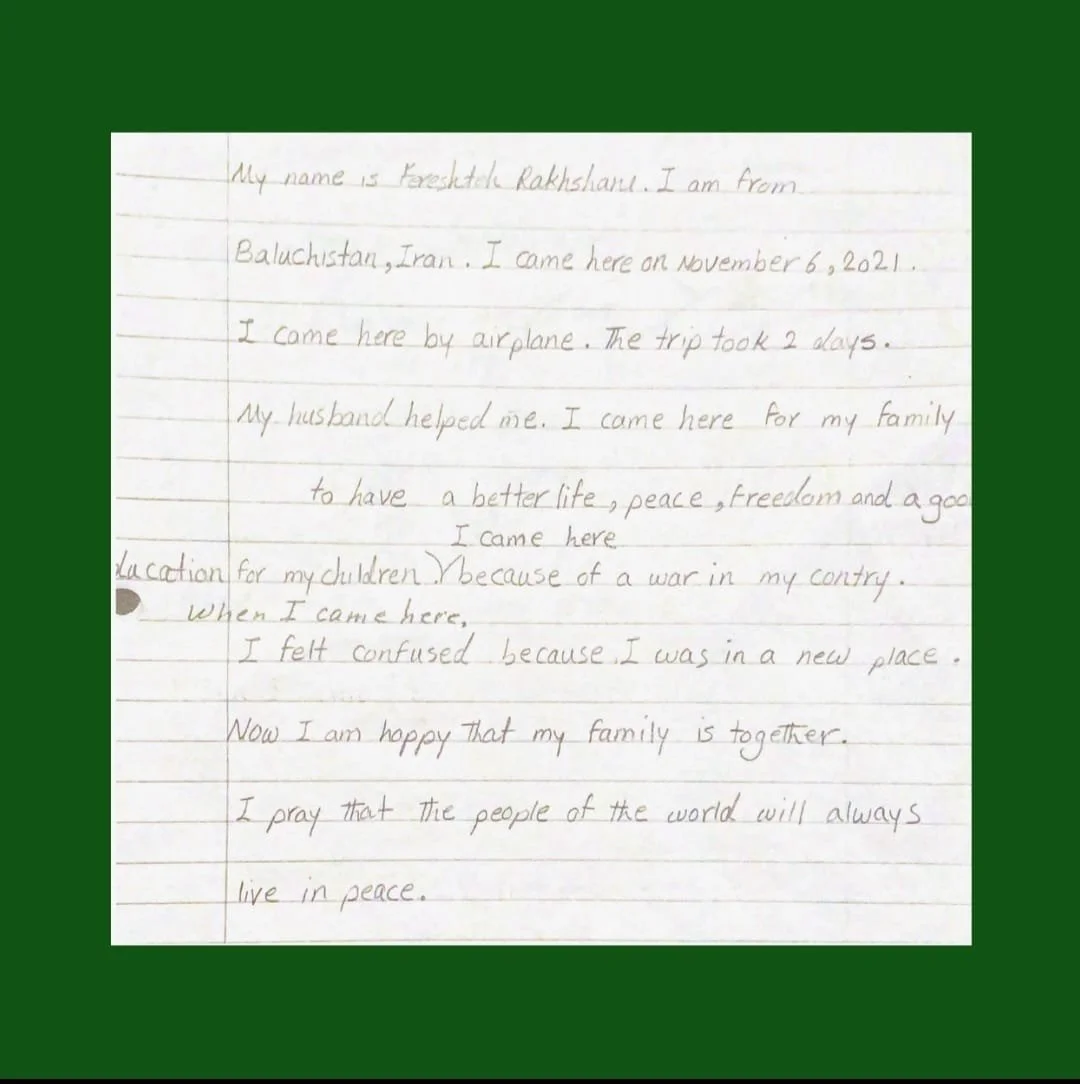 My name is Fereshteh Rakhshani. I am from
Baluchistan, Iran. I came here on November 6, 2021.
I came here by airplane. The trip took 2 days.
My husband helped me. I came here for my family
to have a better life, peace, freedom and a goo
I came here
ducation for my children. because of a war in my contry.
When I came here,
I felt confused because I was in a new place.
Now I am happy that my family is together.
I pray that the people of the world will always
live in peace.